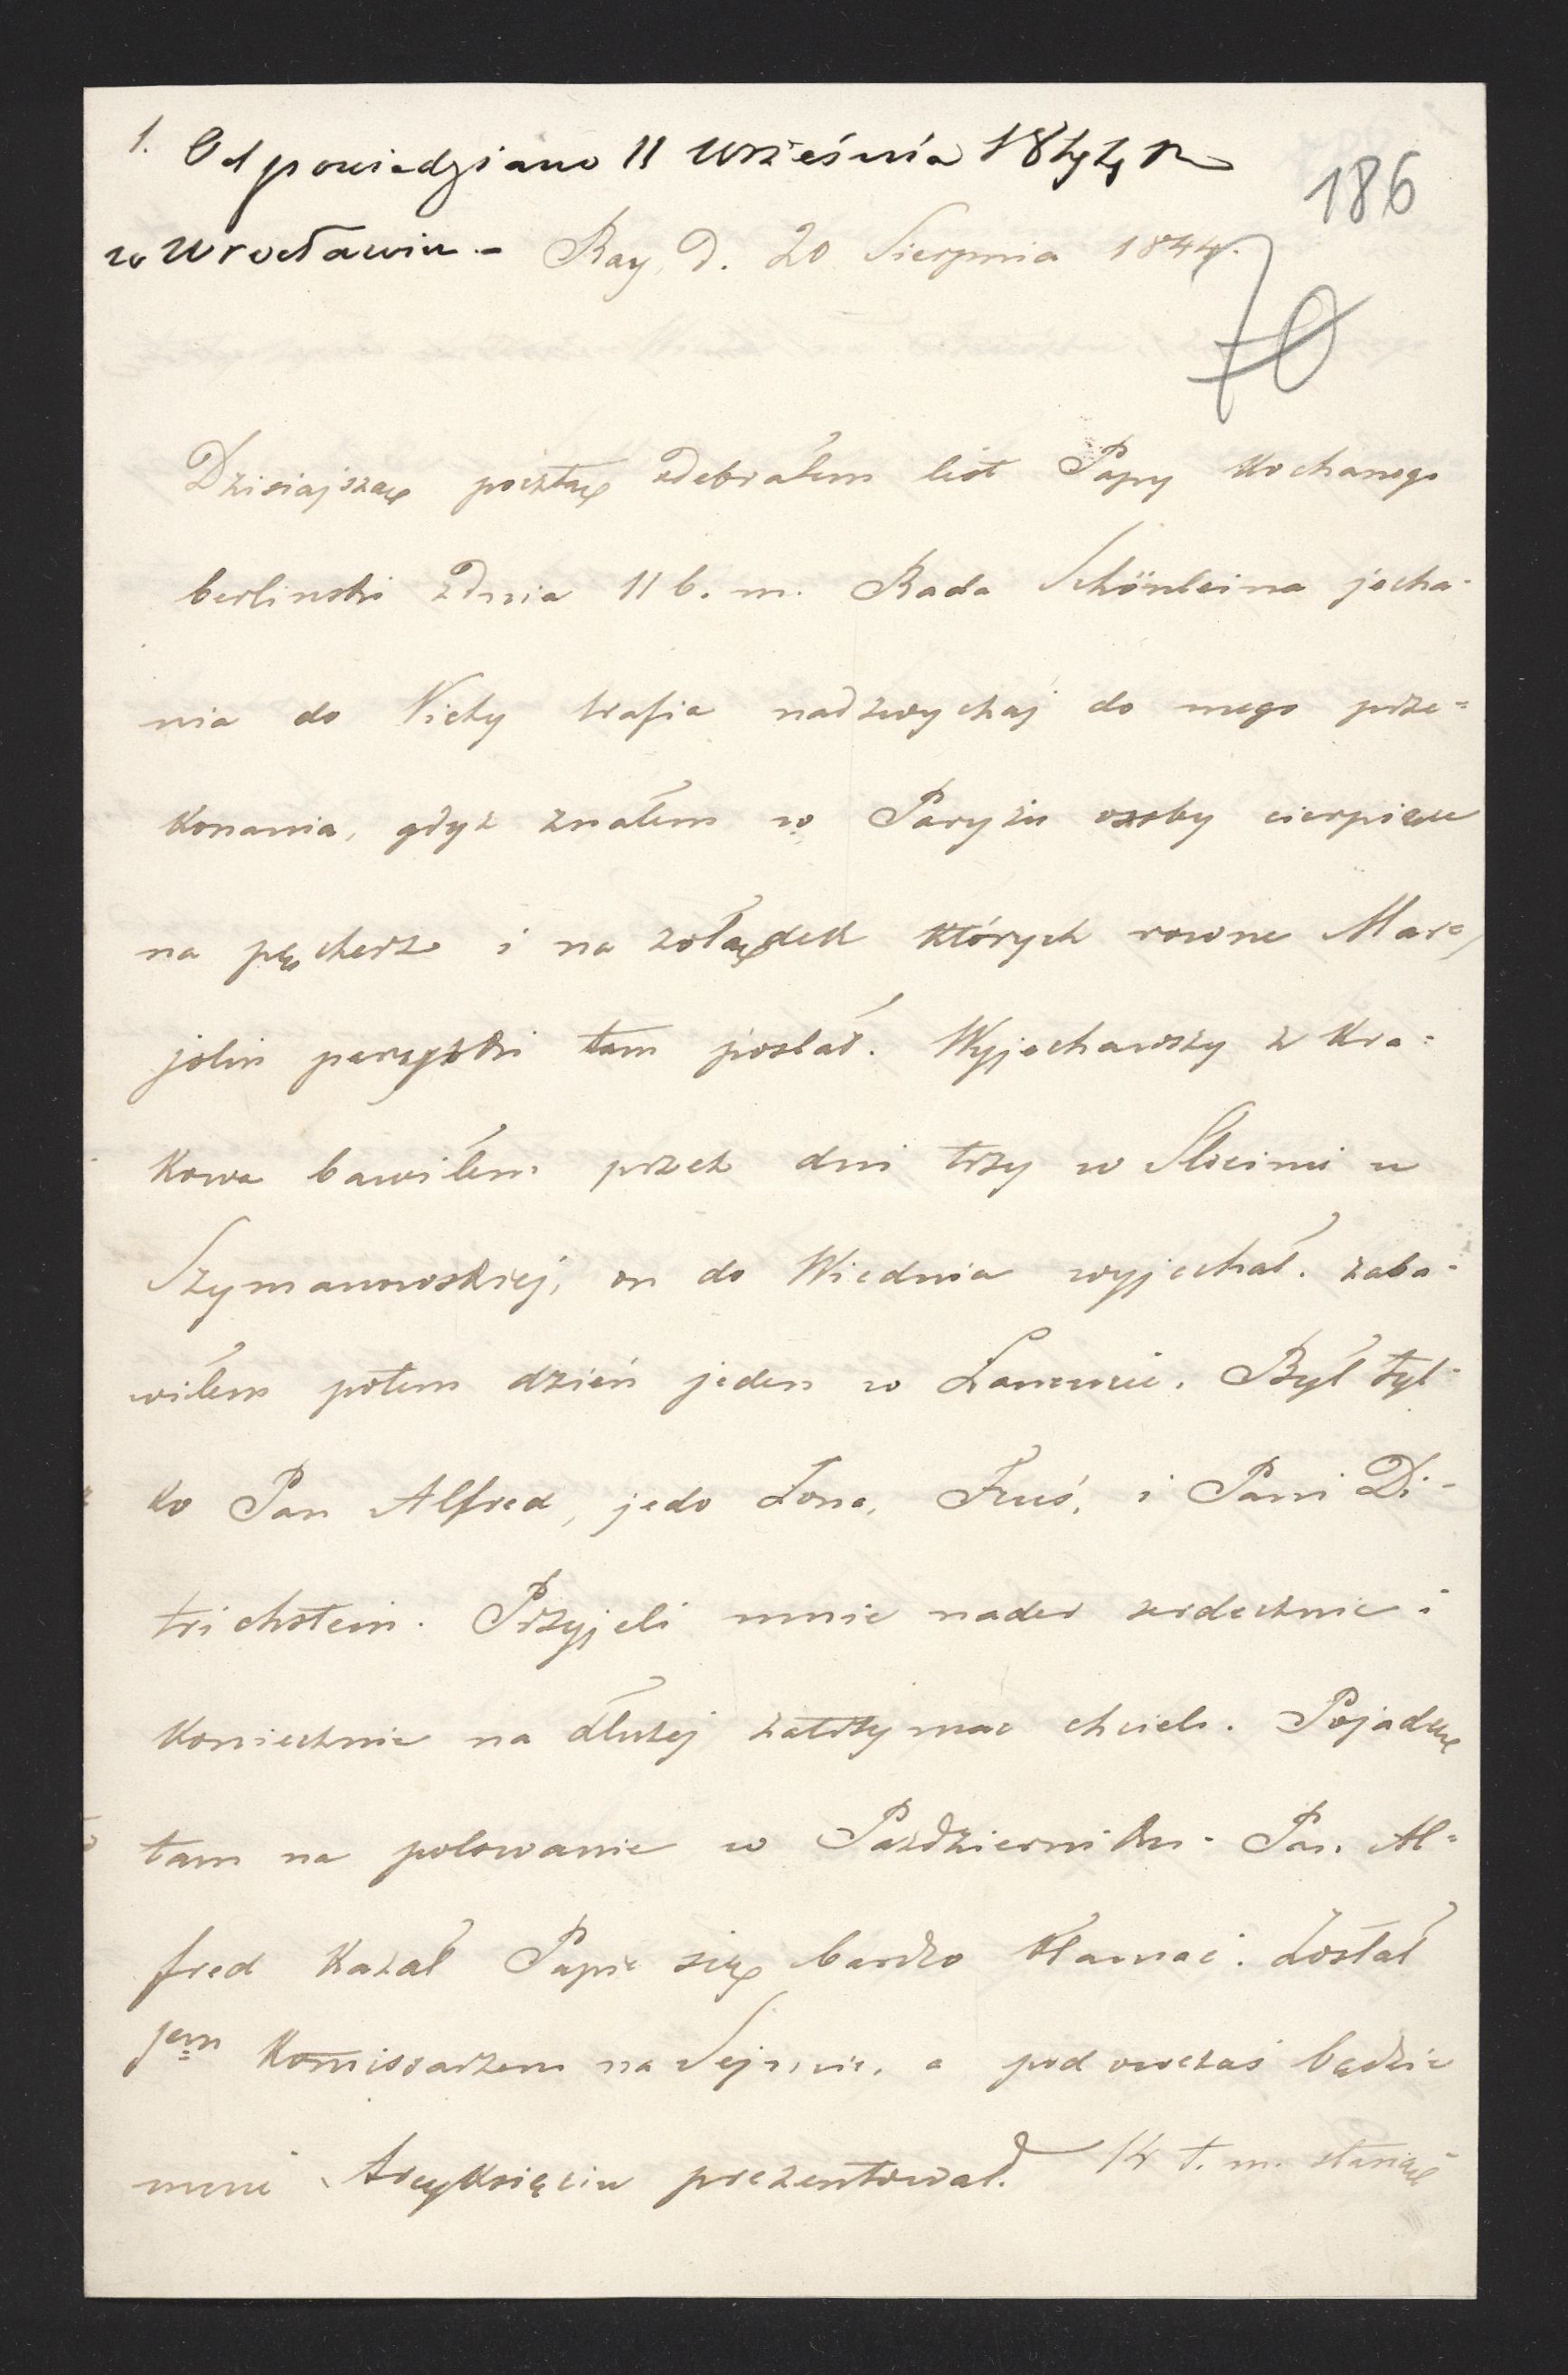 1. Odpowiedziano 11 Września 1844 r
186
w Wrocławiu. - Ray, d. 20 Sierpnia 1844.
70
Dzisiajszą pocztą odebrałem list Papy kochanego
berlinski zdnia 11 b. m. Rada Schönleina jecha-
nia do Vichy trafia nadzwychaj do mego prze=
konania, gdyż znałem w Paryżu osoby cierpiące
na pęcherz i na żołądek których rowne Mar=
jolin paryzki tam posłał. Wyjechawszy z Kra=
kowa bawiłem przez dni trzy w Slocinie u
Szymanowskiej, on do Wiednia wyjechał. zaba-
wiłem potem dzień jeden w Lancucie. Był tyl-
ko Pan Alfred, jedo Żona, Fruś, i Pani Di-
trichstein. Przyjeli mnie nader serdecznie i
koniecznie na dłużej zatrzymac chcieli. Pojadę
tam na polowanie w Pazdzierniku. Pan Al=
fred kazał Papie się bardzo kłamać. Został
jem Komissarzem na Sejmie, a pod owczas będzie
mnie Arcyksięciu prezentował. 14 t. m. stanąć